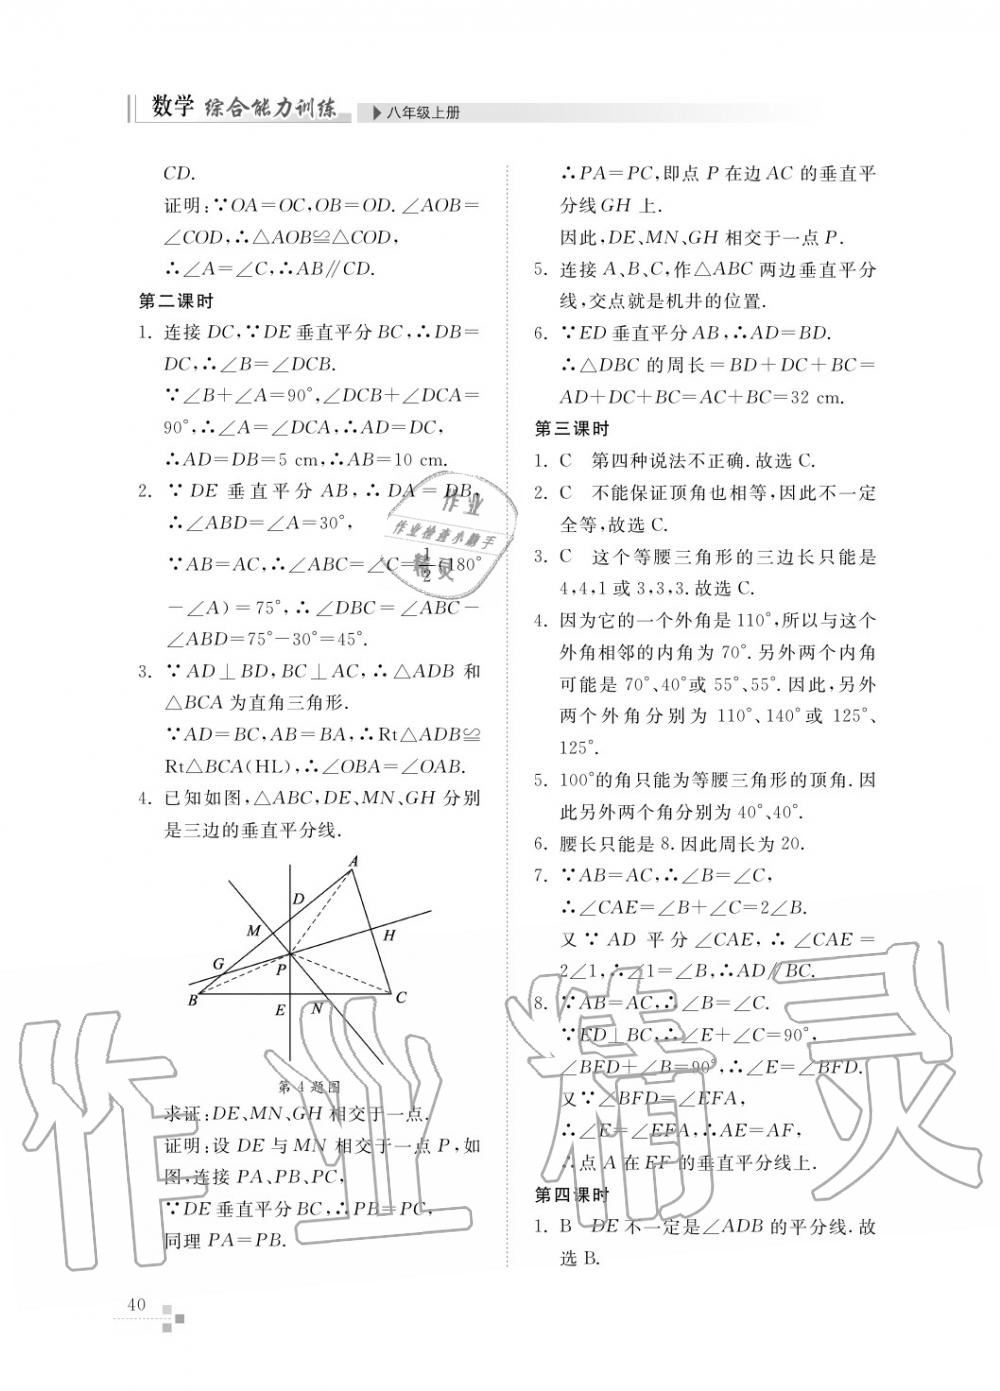 数学 综合能力训练 八年级上册
CD.
证明:∵OA=OC,OB=OD.∠AOB=
∠COD,∴△AOB≌△COD,
∴∠A=∠C,∴AB∥CD.
第二课时
1. 连接 DC,∵DE 垂直平分 BC,∴DB=
DC,∴∠B=∠DCB.
∵∠B+∠A=90°,∠DCB+∠DCA=
90°,∴∠A=∠DCA,∴AD=DC,
∴AD=DB=5 cm,∴AB=10 cm.
2. ∵DE 垂直平分 AB,∴DA=DB,
∴∠ABD=∠A=30°,
∵AB=AC,∴∠ABC=∠C=1/2(180°
-∠A)=75°,∴∠DBC=∠ABC-
∠ABD=75°-30°=45°.
3. ∵AD⊥BD,BC⊥AC,∴△ADB 和
△BCA 为直角三角形.
∵AD=BC,AB=BA,∴Rt△ADB≌
Rt△BCA(HL),∴∠OBA=∠OAB.
4. 已知如图,△ABC,DE、MN、GH 分别
是三边的垂直平分线.
A
D
M
H
G
P
B
E
N
C
第 4 题图
求证:DE、MN、GH 相交于一点.
证明:设 DE 与 MN 相交于一点 P,如
图,连接 PA、PB、PC,
∵DE 垂直平分 BC,∴PB=PC,
同理 PA=PB.
∴PA=PC,即点 P 在边 AC 的垂直平
分线 GH 上.
因此,DE、MN、GH 相交于一点 P.
5. 连接 A、B、C,作△ABC 两边垂直平分
线,交点就是机井的位置.
6. ∵ED 垂直平分 AB,∴AD=BD.
∴△DBC 的周长=BD+DC+BC=
AD+DC+BC=AC+BC=32 cm.
第三课时
1. C 第四种说法不正确.故选 C.
2. C 不能保证顶角也相等,因此不一定
全等,故选 C.
3. C 这个等腰三角形的三边长只能是
4,4,1 或 3,3,3.故选 C.
4. 因为它的一个外角是 110°,所以与这个
外角相邻的内角为 70°.另外两个内角
可能是 70°、40°或 55°、55°.因此,另外
两个外角分别为 110°、140°或 125°、
125°.
5. 100°的角只能为等腰三角形的顶角.因
此另外两个角分别为 40°、40°.
6. 腰长只能是 8.因此周长为 20.
7. ∵AB=AC,∴∠B=∠C,
∴∠CAE=∠B+∠C=2∠B.
又∵AD 平分∠CAE,∴∠CAE=
2∠1,∴∠1=∠B,∴AD∥BC.
8. ∵AB=AC,∴∠B=∠C.
∵ED⊥BC,∴∠E+∠C=90°,
∠BFD+∠B=90°,∴∠E=∠BFD.
又∵∠BFD=∠EFA,
∴∠E=∠EFA,∴AE=AF,
∴点 A 在 EF 的垂直平分线上.
第四课时
1. B DE 不一定是∠ADB 的平分线.故
选 B.
40
作业
作业检查小助手
精灵
作业精灵